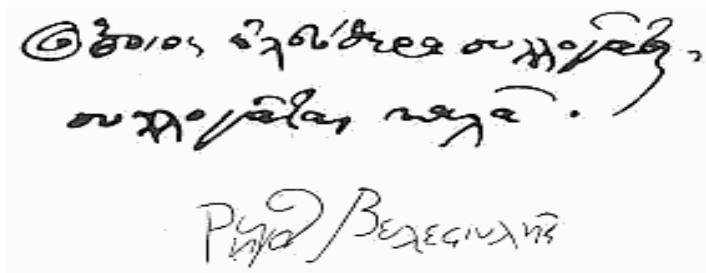 Ὅποιος ἐλεύθερα συλλογᾶται,
συλλογᾶται καλά.
Ρήγας Βελεστινλής